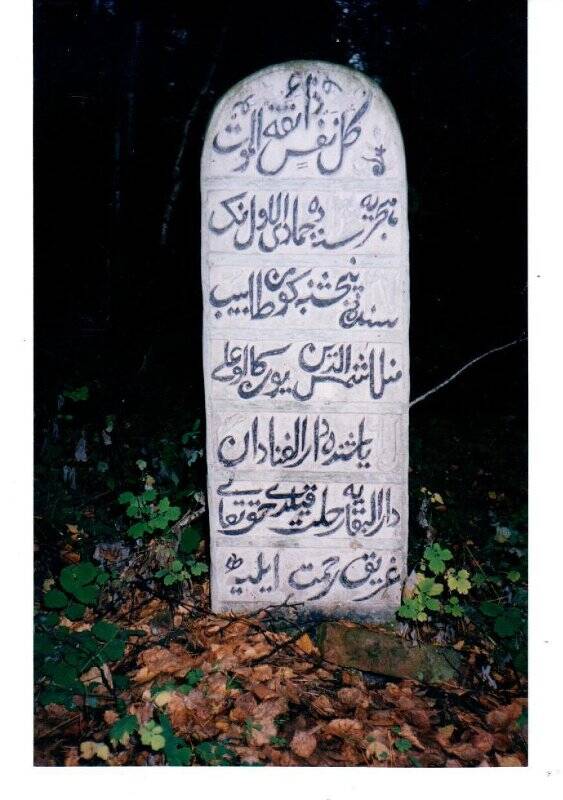 كل نفس ذائقة الموت
هجريه سنه ده جمادى الاول نك
پنجشنبه كون طبيب
منلا شمس الدين اوغلى
ياشنده دار الفنادان
دار البقايه رحلت قيلدى حق تعالى
غريق رحمت ايليه